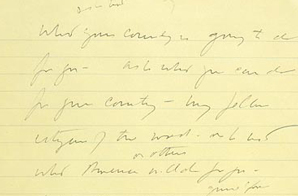 ask not
what your country is going to do
for you - ask what you can do
for your country - my fellow
citizens of the world - ask not
or others
what America will do for you -